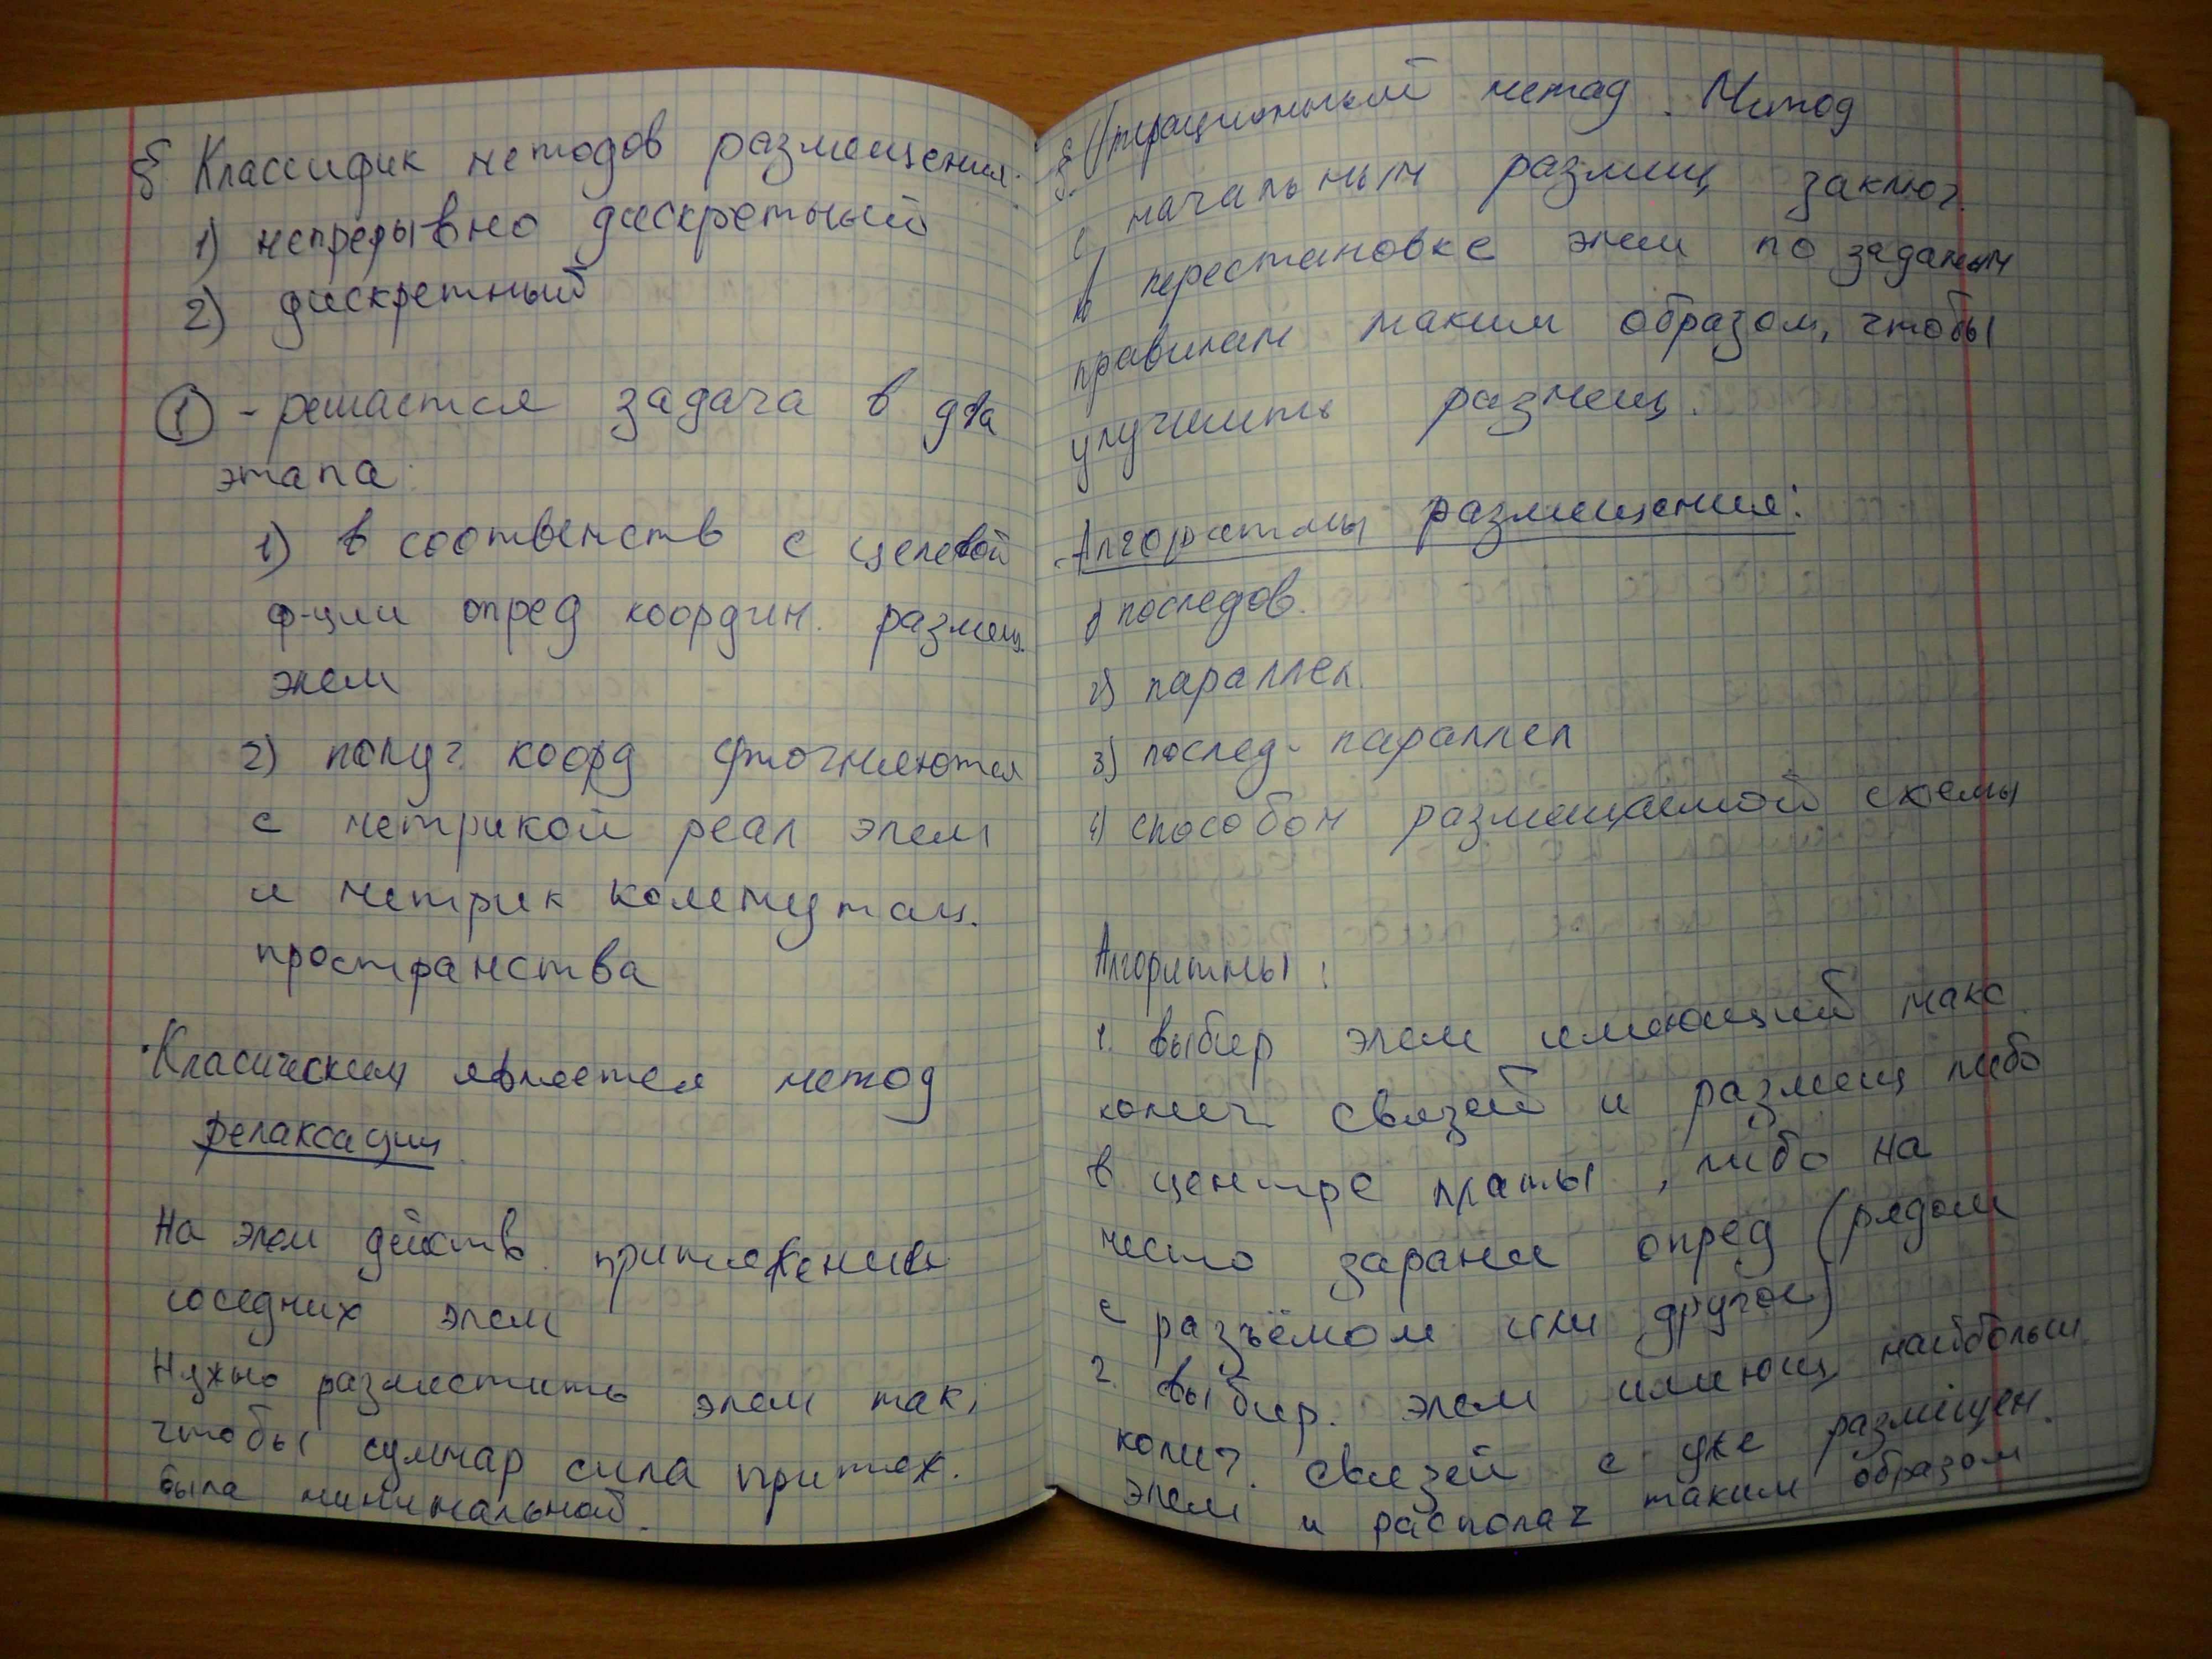 § Классифик методов размещения.
1) непрерывно дискретный
2) дискретный
① - решается задача в два
этапа:
1) в соотвенств с целевой
ф-ции опред координ. размещ.
элем
2) получ. коорд уточняются
с метрикой реал элем
и метрик коммутац.
пространства
Класическим является метод
релаксации.
На элем действ. притяжения
соседних элем
Нужно разместить элем так,
чтобы суммар сила притяж.
была минимальной.
§ Итрационный метод. Митод
с начальным размищ заключ.
в перестановке элем по заданым
правилам таким образом, чтобы
улучшить размещ.
Алгоритмы размищения:
1) последов.
2) параллел.
3) послед - параллел
4) способом размещаемой схемы
Алгоритмы:
1. выбир элем имеющий макс
колич связей и размещ либо
в центре платы, либо на
место заранее опред (рядом
с разъёмом или другое)
2. выбир. элем имеющ наибольш.
колич. связей с уже размещен.
элем и располаг таким образом